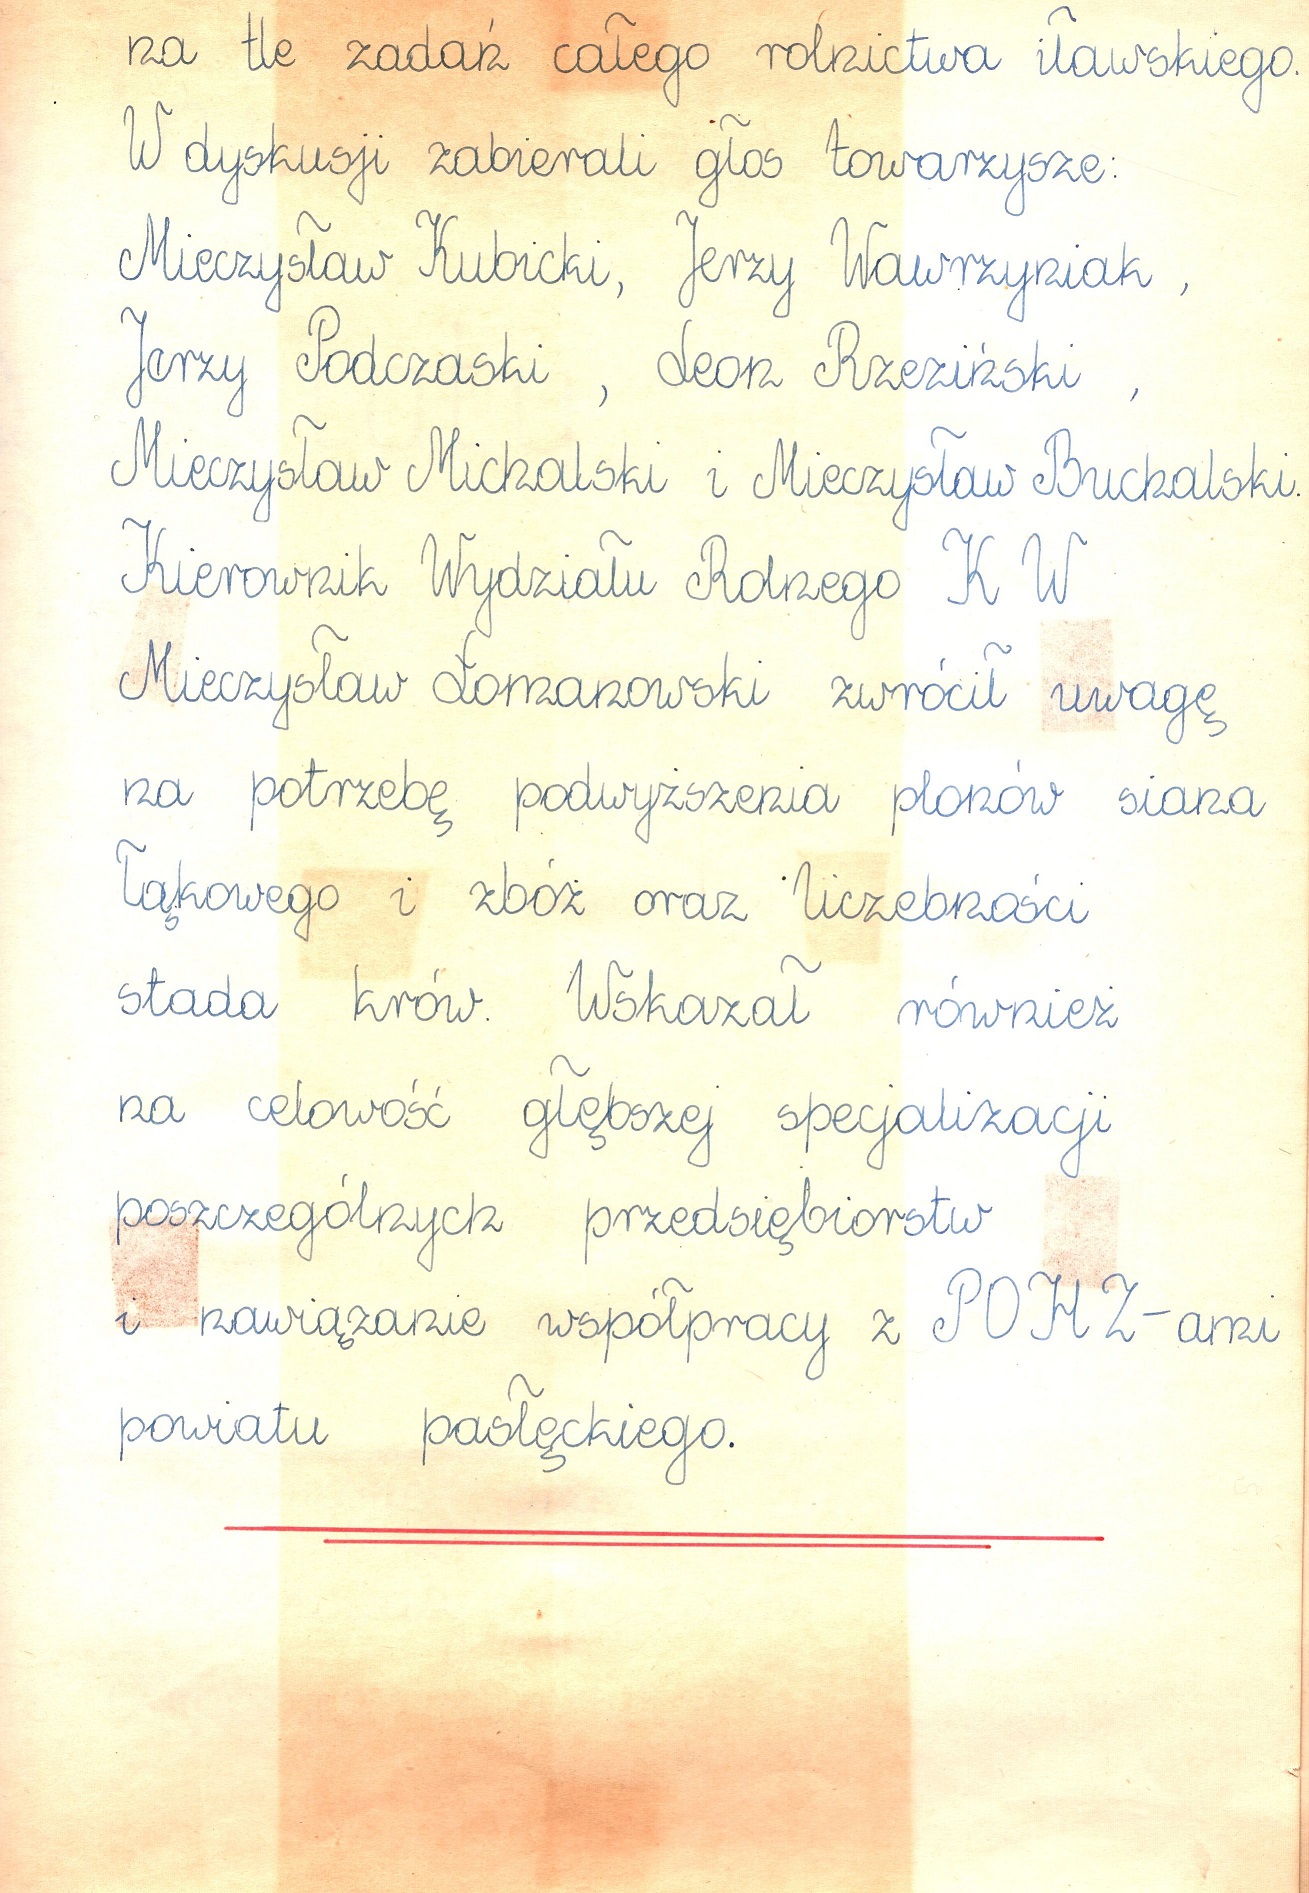 na tle zadań całego rolnictwa iławskiego.
W dyskusji zabierali głos towarzysze:
Mieczysław Kubicki, Jerzy Wawrzyniak,
Jerzy Podczaski, Leon Rzeziński,
Mieczysław Michalski i Mieczysław Buchalski.
Kierownik Wydziału Rolnego KW
Mieczysław Łomanowski zwrócił uwagę
na potrzebę podwyższenia plonów siana
łąkowego i zbóż oraz liczebności
stada krów. Wskazał również
na celowość głębszej specjalizacji
poszczególnych przedsiębiorstw
i nawiązanie współpracy z POHZ-ami
powiatu pasłęckiego.